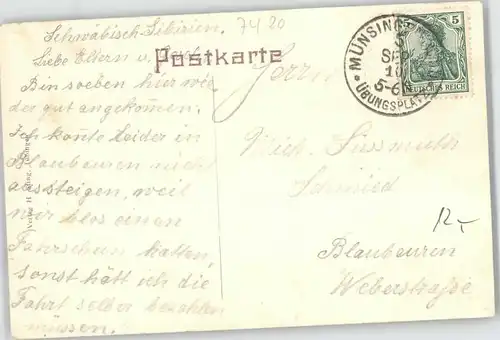 Schwäbisch Sibirien.
7420
Liebe Eltern u.
Postkarte
Bin soeben hier wie
der gut angekommen.
Ich konnte leider in
Blaubeuren nicht
aussteigen, weil
wir blos einen
Fahrschein hatten,
sonst hätt ich die
Fahrt selber bezahlen
müssen.
Verlag H.
Herrn
Süssmuth
Schmied
Blaubeuren
Weberstraße
12,-
MÜNSINGEN
SEP
10
5-6
ÜBUNGSPLATZ
5
DEUTSCHES REICH